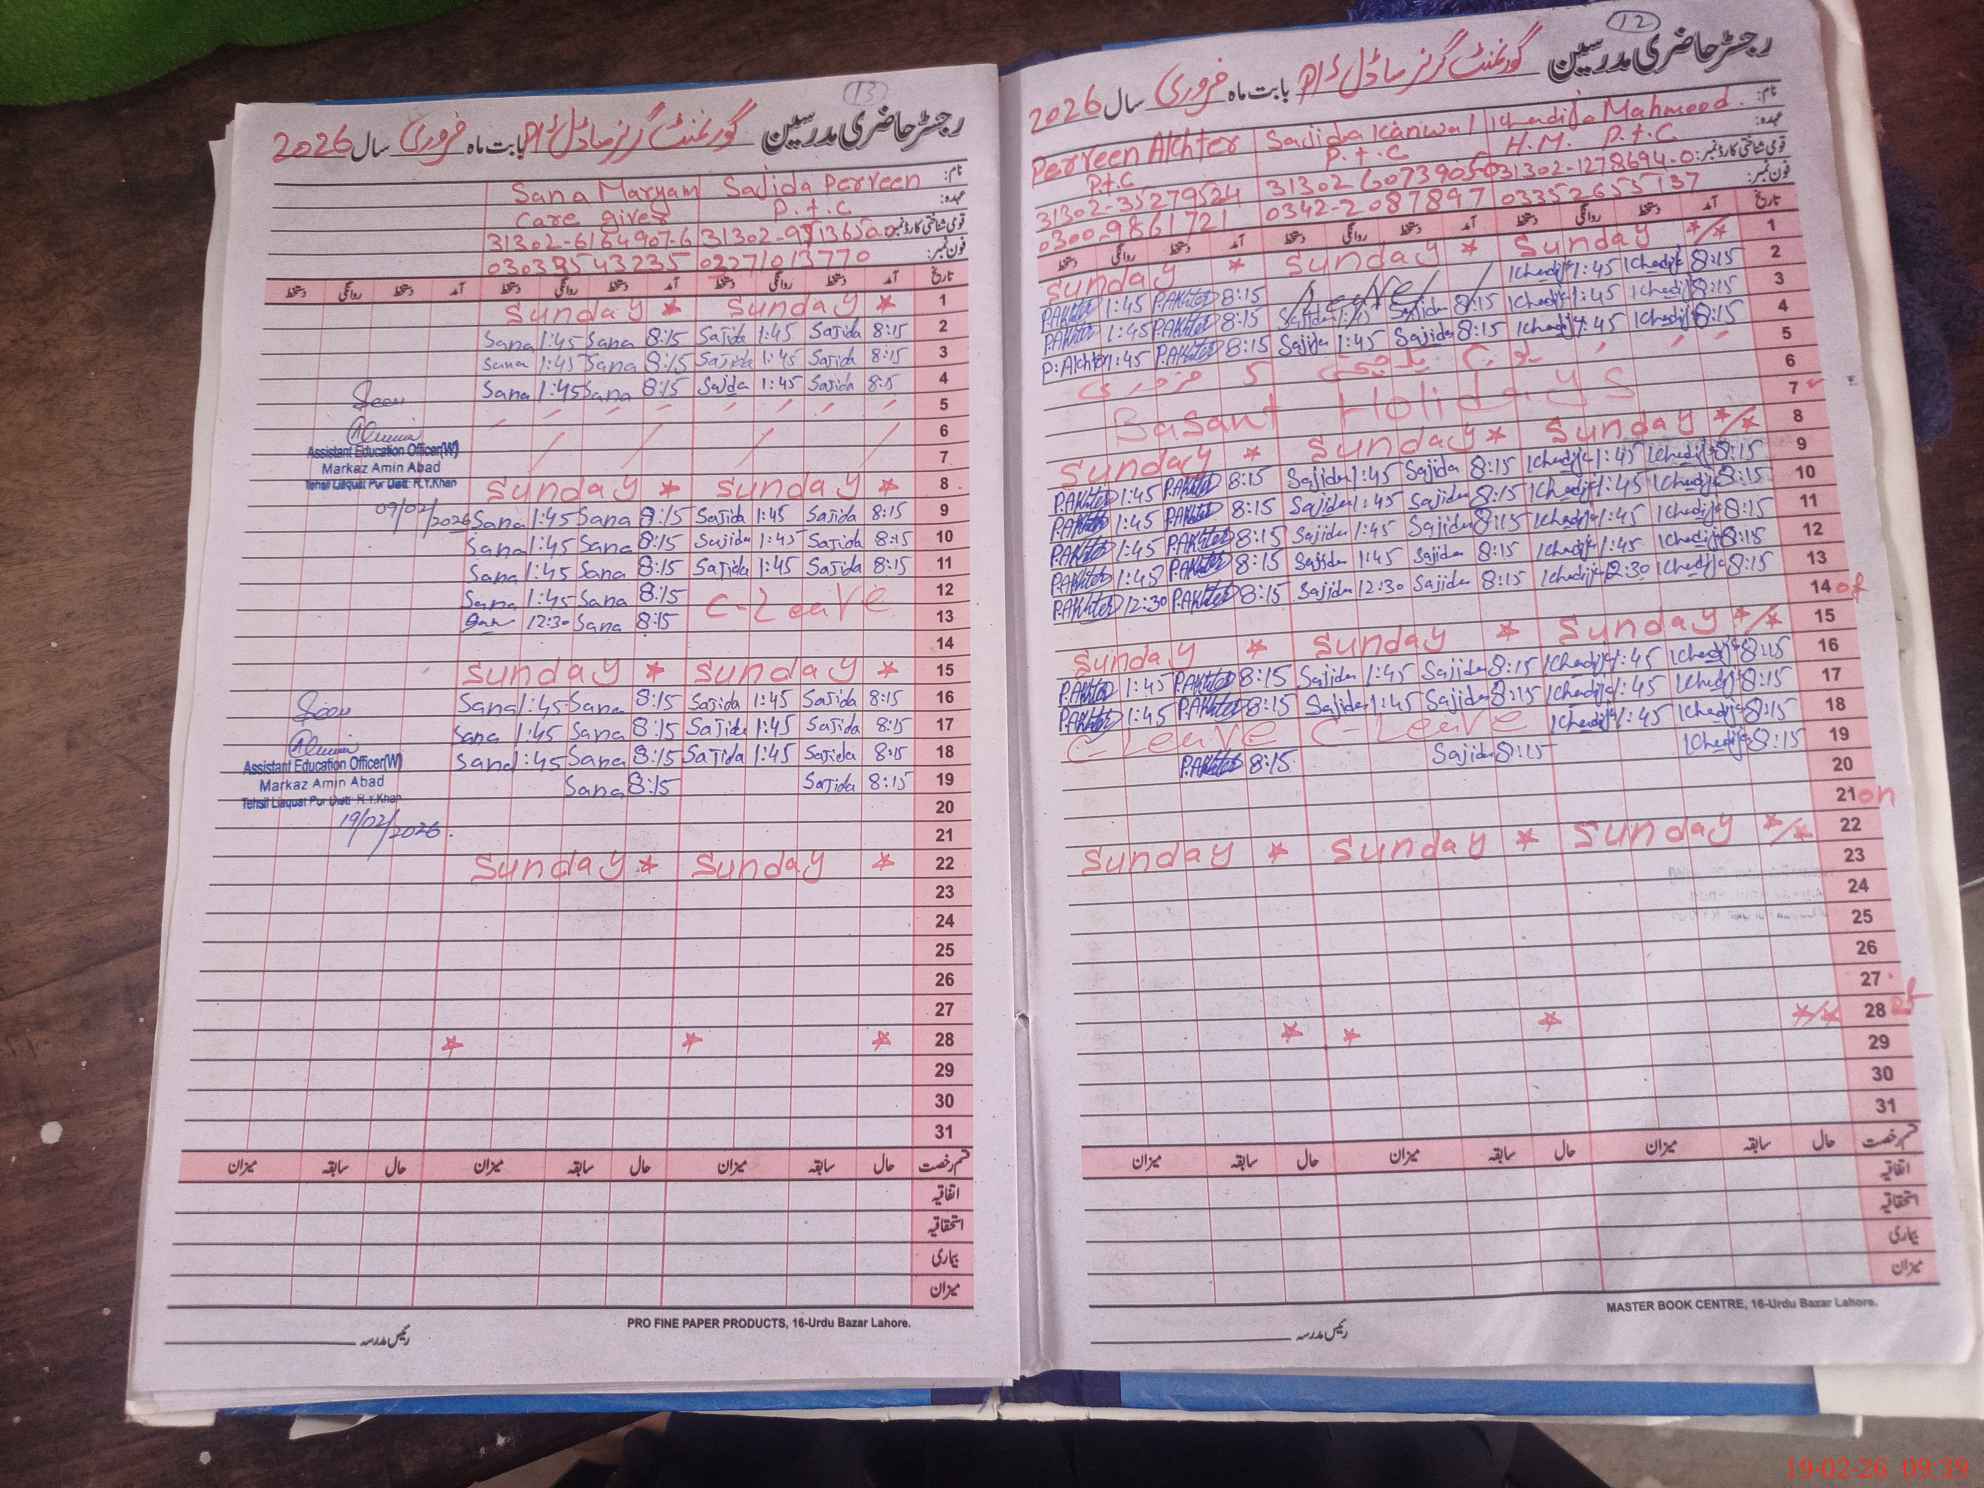 13
رجسٹر حاضری مدرسین گورنمنٹ گرلز ماڈل بابت ماہ فروری سال 2026
نام: Sana Maryam Sajida Perveen
عہدہ: Care giver P.t.c
قومی شناختی کارڈ نمبر: 31302-6164907-6
فون نمبر: 03039543235 02271013770
تاریخ آمد دستخط روانگی دستخط آمد دستخط روانگی دستخط آمد دستخط روانگی دستخط
Sunday * Sunday * 1
Sana 1:45 Sana 8:15 Sajida 1:45 Sajida 8:15 2
Sana 1:45 Sana 8:15 Sajida 1:45 Sajida 8:15 3
Sana 1:45 Sana 8:15 Sajda 1:45 Sajida 8:15 4
Seen
5
6
Assistant Education Officer(W)
Markaz Amin Abad
7
Tehsil Liaquat Pur Distt: R.Y.Khan
Sunday * Sunday * 8
09/02/2026 Sana 1:45 Sana 8:15 Sajida 1:45 Sajida 8:15 9
Sana 1:45 Sana 8:15 Sajida 1:45 Sajida 8:15 10
Sana 1:45 Sana 8:15 Sajida 1:45 Sajida 8:15 11
Sana 1:45 Sana 8:15 C-Leave 12
San 12:30 Sana 8:15 13
14
Sunday * Sunday * 15
Sana 1:45 Sana 8:15 Sajida 1:45 Sajida 8:15 16
Seen
Sana 1:45 Sana 8:15 Sajida 1:45 Sajida 8:15 17
Sana 1:45 Sana 8:15 Sajida 1:45 Sajida 8:15 18
Assistant Education Officer(W)
Markaz Amin Abad
Sana 8:15 Sajida 8:15 19
Tehsil Liaquat Pur Distt: R.Y.Khan
19/02/2026.
20
21
Sunday * Sunday * 22
23
24
25
26
27
* * * 28
29
30
31
قسم رخصت حال سابقہ میزان حال سابقہ میزان حال سابقہ میزان
اتفاقیہ
استحقاقیہ
بیماری
میزان
PRO FINE PAPER PRODUCTS, 16-Urdu Bazar Lahore.
رئیس مدرسہ
12
رجسٹر حاضری مدرسین گورنمنٹ گرلز ماڈل بابت ماہ فروری سال 2026
نام: Perveen Akhter Sajida Kanwal Khadija Mahmood.
عہدہ: P.t.c P.t.c H.M. P.t.C
قومی شناختی کارڈ نمبر: 31302-35279524 31302 6073905 31302-1278694-0
فون نمبر: 0300-9861721 0342-2087897 03352655137
تاریخ آمد دستخط روانگی دستخط آمد دستخط روانگی دستخط آمد دستخط روانگی دستخط
Sunday * Sunday * Sunday */* 1
P.Akhter 1:45 P.Akhter 8:15 Khadija 1:45 Khadija 8:15 2
P.Akhter 1:45 P.Akhter 8:15 Sajida 1:45 Sajida 8:15 Khadija 1:45 Khadija 8:15 3
P.Akhter 1:45 P.Akhter 8:15 Sajida 1:45 Sajida 8:15 Khadija 1:45 Khadija 8:15 4
5 فروری 5
6
Basant Holidays 7
Sunday * Sunday * Sunday */* 8
P.Akhter 1:45 P.Akhter 8:15 Sajida 1:45 Sajida 8:15 Khadija 1:45 Khadija 8:15 9
P.Akhter 1:45 P.Akhter 8:15 Sajida 1:45 Sajida 8:15 Khadija 1:45 Khadija 8:15 10
P.Akhter 1:45 P.Akhter 8:15 Sajida 1:45 Sajida 8:15 Khadija 1:45 Khadija 8:15 11
P.Akhter 1:45 P.Akhter 8:15 Sajida 1:45 Sajida 8:15 Khadija 1:45 Khadija 8:15 12
P.Akhter 12:30 P.Akhter 8:15 Sajida 12:30 Sajida 8:15 Khadija 12:30 Khadija 8:15 13
14 of
Sunday * Sunday * Sunday */* 15
P.Akhter 1:45 P.Akhter 8:15 Sajida 1:45 Sajida 8:15 Khadija 1:45 Khadija 8:15 16
P.Akhter 1:45 P.Akhter 8:15 Sajida 1:45 Sajida 8:15 Khadija 1:45 Khadija 8:15 17
C-Leave C-Leave Khadija 1:45 Khadija 8:15 18
P.Akhter 8:15 Sajida 8:15 Khadija 8:15 19
20
21 on
Sunday * Sunday * Sunday */* 22
23
24
25
26
27
* * * */* 28 of
29
30
31
قسم رخصت حال سابقہ میزان حال سابقہ میزان حال سابقہ میزان
اتفاقیہ
استحقاقیہ
بیماری
میزان
MASTER BOOK CENTRE, 16-Urdu Bazar Lahore.
رئیس مدرسہ
19-02-26 09:39